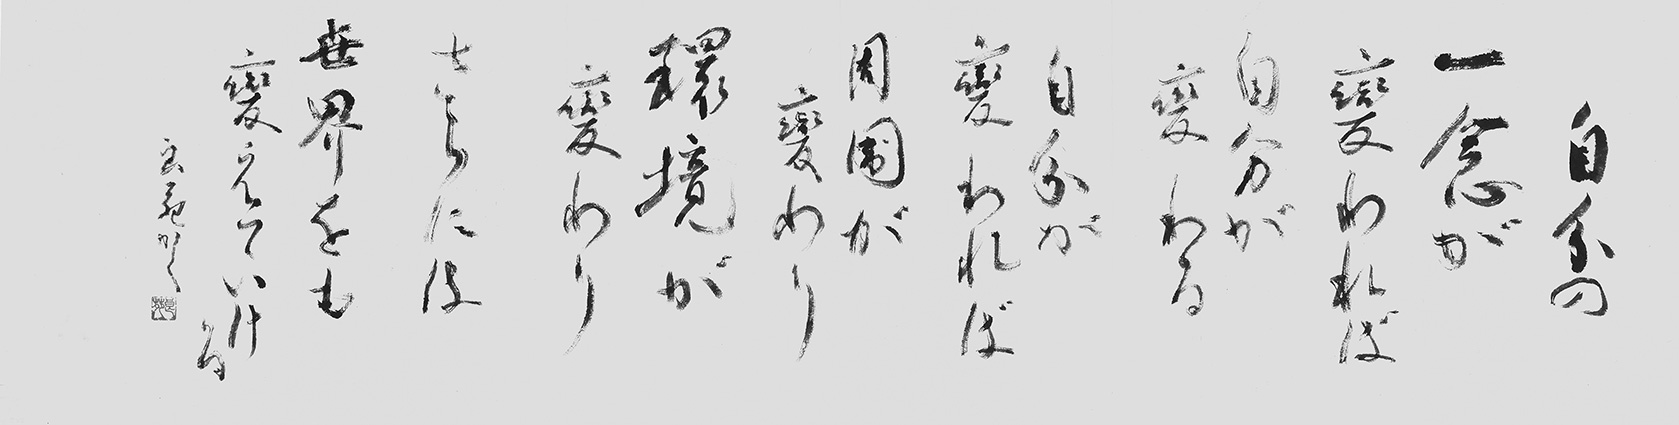 自分の
一念が
變われば
自分が
變わる
自分が
變われば
周囲が
變わり
環境が
變わり
さらには
世界をも
變えていける